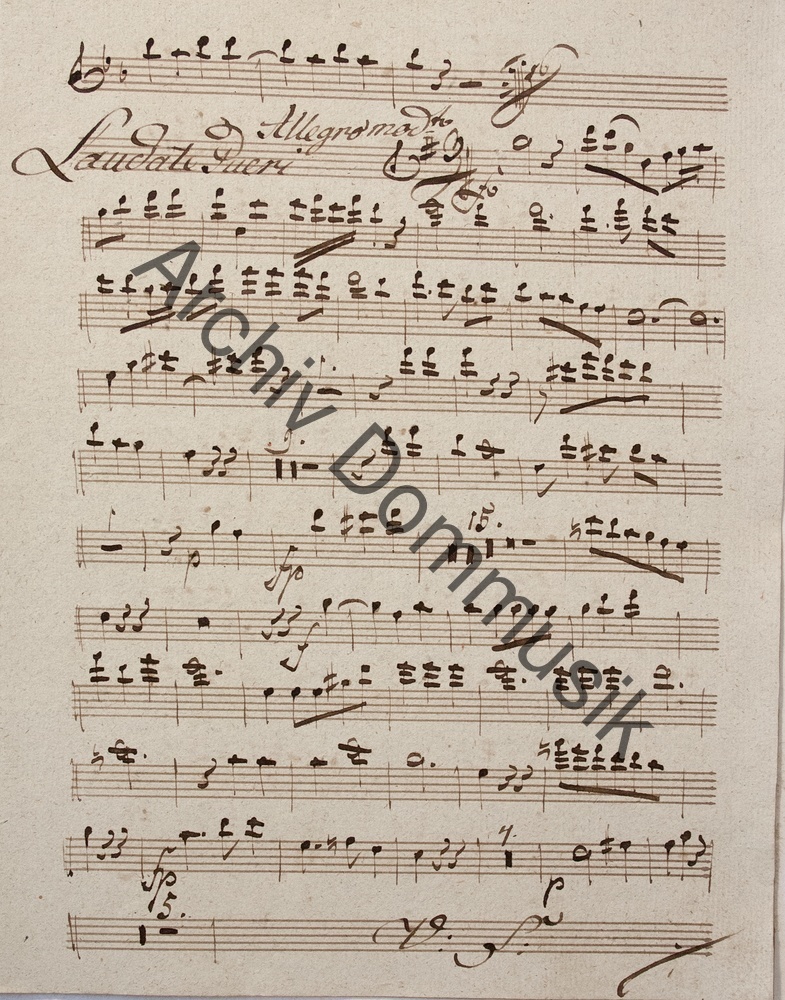 Allegro mod.to
Laudate Pueri
Archiv Dommusik
p
fp
15.
f
fp
4.
p
5.
V. S.